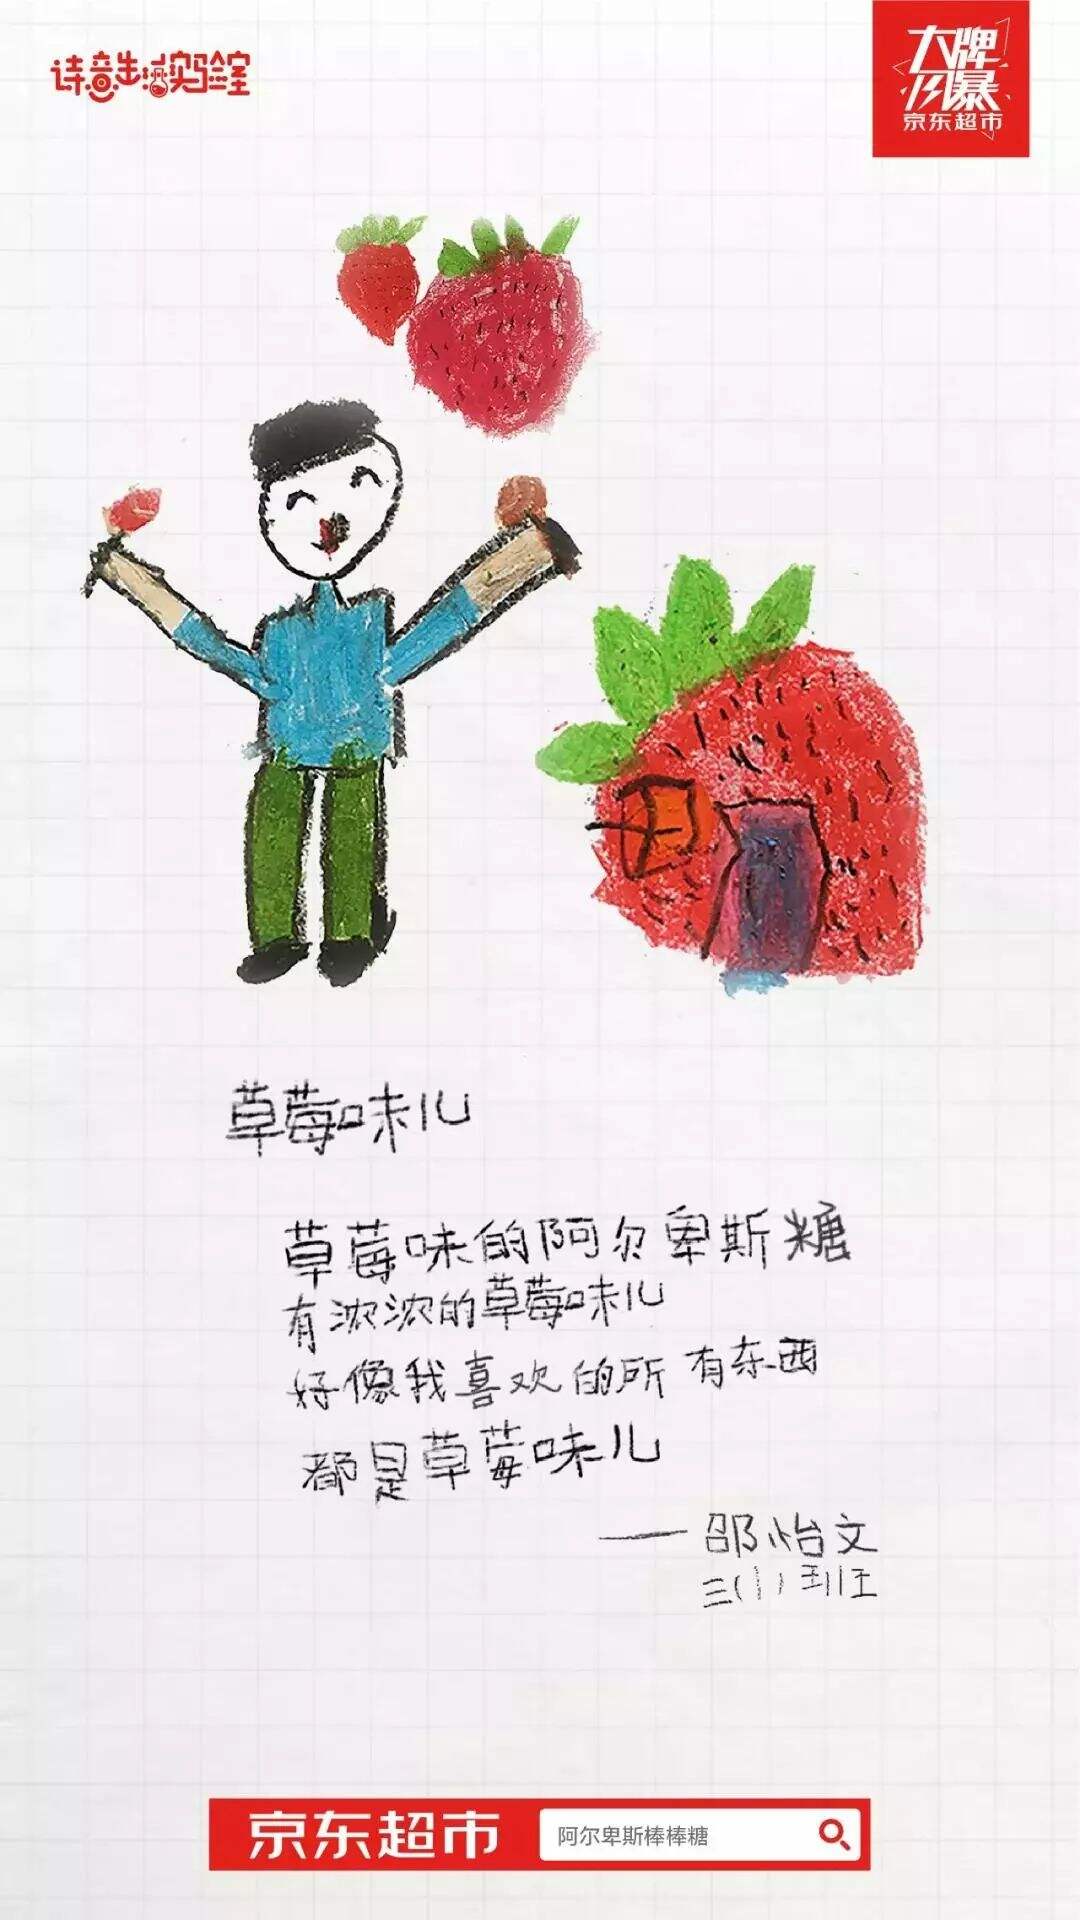 诗意生活实验室
大牌
风暴
京东超市
草莓味儿
草莓味的阿尔卑斯糖
有浓浓的草莓味儿
好像我喜欢的所有东西
都是草莓味儿
——邵怡文
三(1)班
京东超市 阿尔卑斯棒棒糖